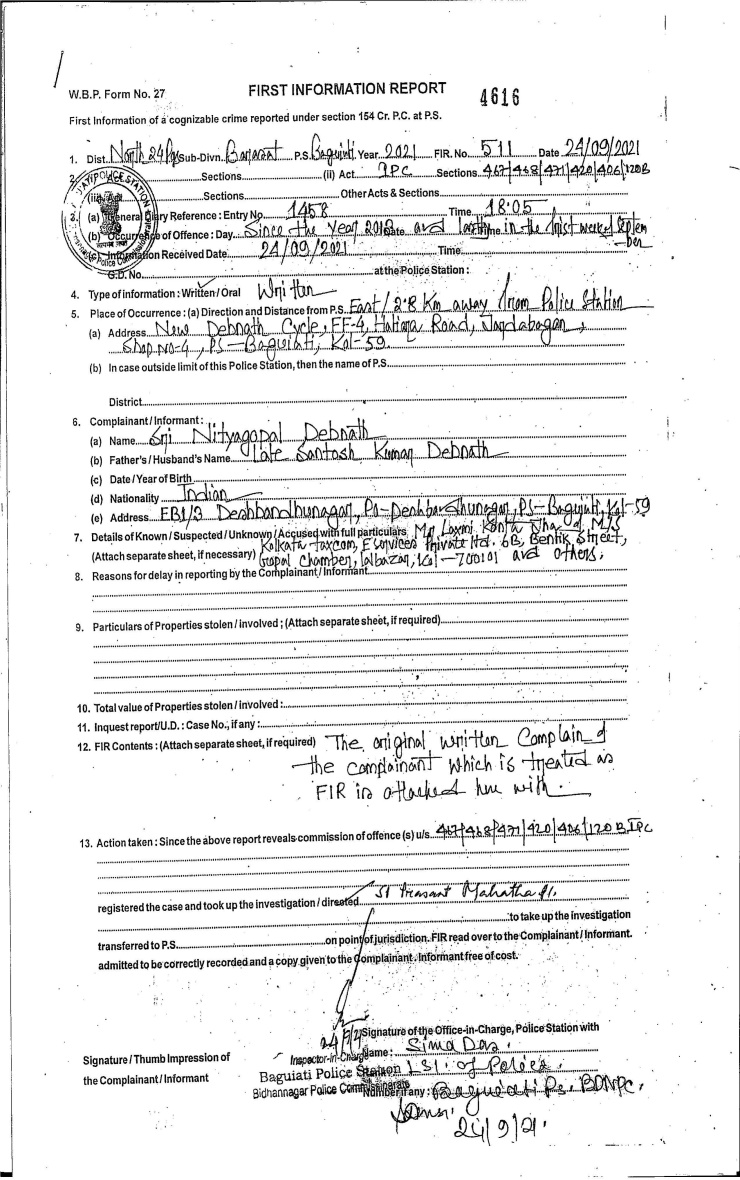 W.B.P. Form No. 27 FIRST INFORMATION REPORT 4616
First Information of a cognizable crime reported under section 154 Cr. P.C. at P.S.
1. Dist. North 24 Pgs Sub-Divn. Barasat P.S. Baguiati Year 2021 FIR. No. 511 Date 24/09/2021
2. Sections (ii) Act. IPC Sections 467/468/471/420/406/120B
(iii) Act Sections Other Acts & Sections
3. (a) General Diary Reference : Entry No. 1458 Time 18:05
(b) Occurrence of Offence : Day Since the Year Date and last Time in the first week of Septem
-ber
(c) Information Received Date 24/09/2021 Time
G.D. No. at the Police Station :
4. Type of information : Written / Oral Written
5. Place of Occurrence : (a) Direction and Distance from P.S. East / 2.8 Km away from Police Station
(a) Address New Debnath Cycle, FF-4, Hatiara Road, Jagdabagan,
Shop No-4, PS-Baguiati, Kol-59.
(b) In case outside limit of this Police Station, then the name of P.S.
District
6. Complainant / Informant :
(a) Name Sri Nityagopal Debnath
(b) Father's / Husband's Name Late Santosh Kumar Debnath
(c) Date / Year of Birth
(d) Nationality Indian
(e) Address EB1/3 Deshbandhunagar, Po-Deshbandhunagar, PS-Baguiati, Kol-59
7. Details of Known / Suspected / Unknown / Accused with full particulars Laxmi Kanta M/S
(Attach separate sheet, if necessary) Kolkata Taxcom, Eservices Private ltd. 6B, Bentik Street,
Gopal Chamber, lalbazar, Kol-700101 and others.
8. Reasons for delay in reporting by the Complainant / Informant
9. Particulars of Properties stolen / involved ; (Attach separate sheet, if required)
10. Total value of Properties stolen / involved :
11. Inquest report / U.D. : Case No., if any :
12. FIR Contents : (Attach separate sheet, if required) The original written Complain of
the complainant which is treated as
FIR is attached here with.
13. Action taken : Since the above report reveals commission of offence (s) u/s. 467/468/471/420/406/120B IPC
registered the case and took up the investigation / directed SI Prasant Mahatha
to take up the investigation
transferred to P.S. on point of jurisdiction. FIR read over to the Complainant / Informant.
admitted to be correctly recorded and a copy given to the Complainant. Informant free of cost.
Signature of the Office-in-Charge, Police Station with
Signature / Thumb Impression of Inspector-in-Charge Name : Sima Das.
the Complainant / Informant Baguiati Police Station of Police.
Bidhannagar Police Commissionerate Number if any : Baguiati Ps. BDNPC.
24/9/21.